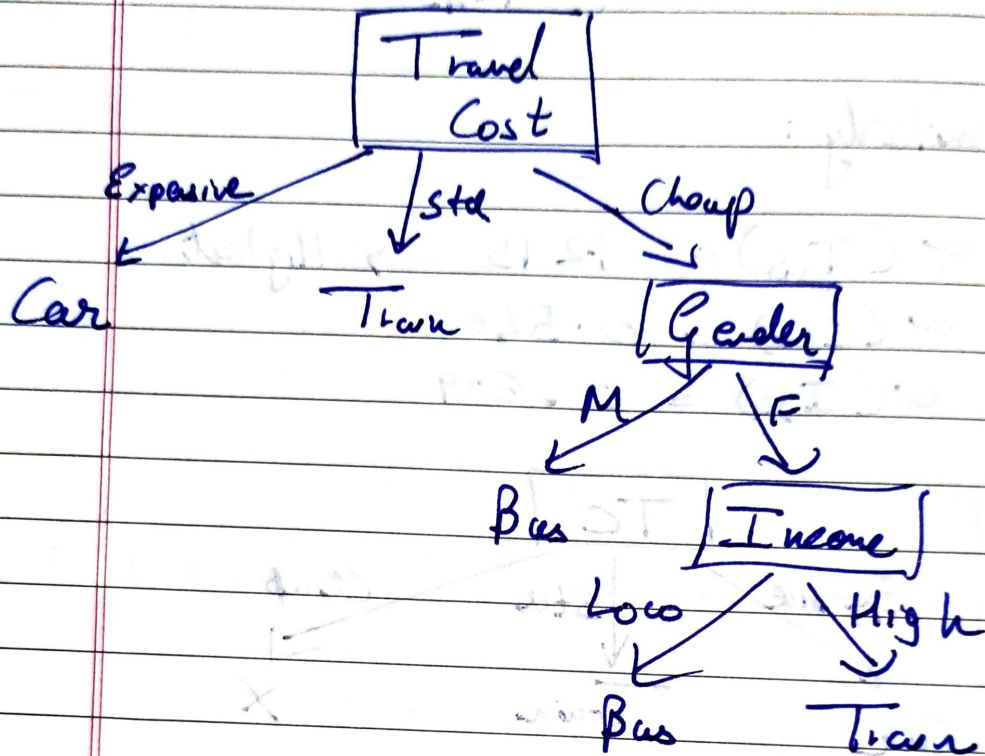 Travel
Cost
Expasive
Std
Cheap
Car
Train
Gender
M
F
Bus
Income
Low
High
Bus
Train